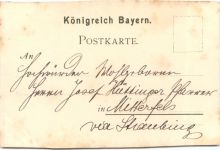 Königreich Bayern.
POSTKARTE.
An
Hochwürden Wohlgeboren
Herrn Josef Pfarrer
in Mitterfels
via Straubing